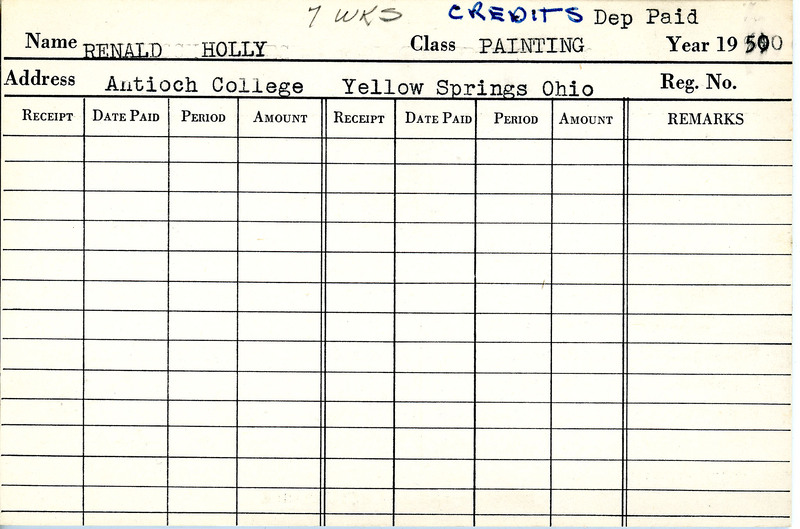 7 WKS CREDITS Dep Paid
Name RENALD HOLLY Class PAINTING Year 19 50
Address Antioch College Yellow Springs Ohio Reg. No.
RECEIPT DATE PAID PERIOD AMOUNT RECEIPT DATE PAID PERIOD AMOUNT REMARKS